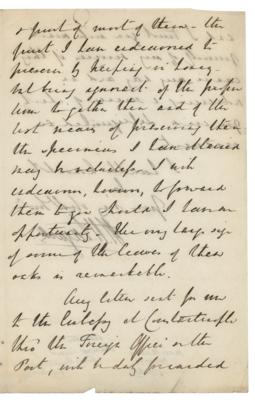 & fruit of most of them — the
fruit, I have endeavoured to
preserve by keeping in honey —
but being ignorant of the
and of the
best means of preserving them
the specimens I have obtained
may be valueless. I will
endeavour, however, to forward
them to you should I have an
opportunity. The very large size
of some of the leaves of these
oaks is remarkable.
Any letter sent for me
to the Embassy at Constantinople
thro' the Foreign Office or the
Post, will be duly forwarded